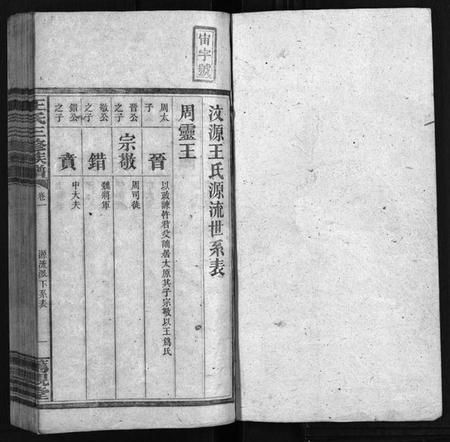 宙字號
汶源王氏源流世系表
周靈王
周太子
晉
以直諫忤君父謫居太原其子宗敬以王爲氏
晉公之子
宗敬
周司徒
敬公之子
錯
魏將軍
錯公之子
賁
中大夫
王氏三修族譜
卷一
源流派下系表
一